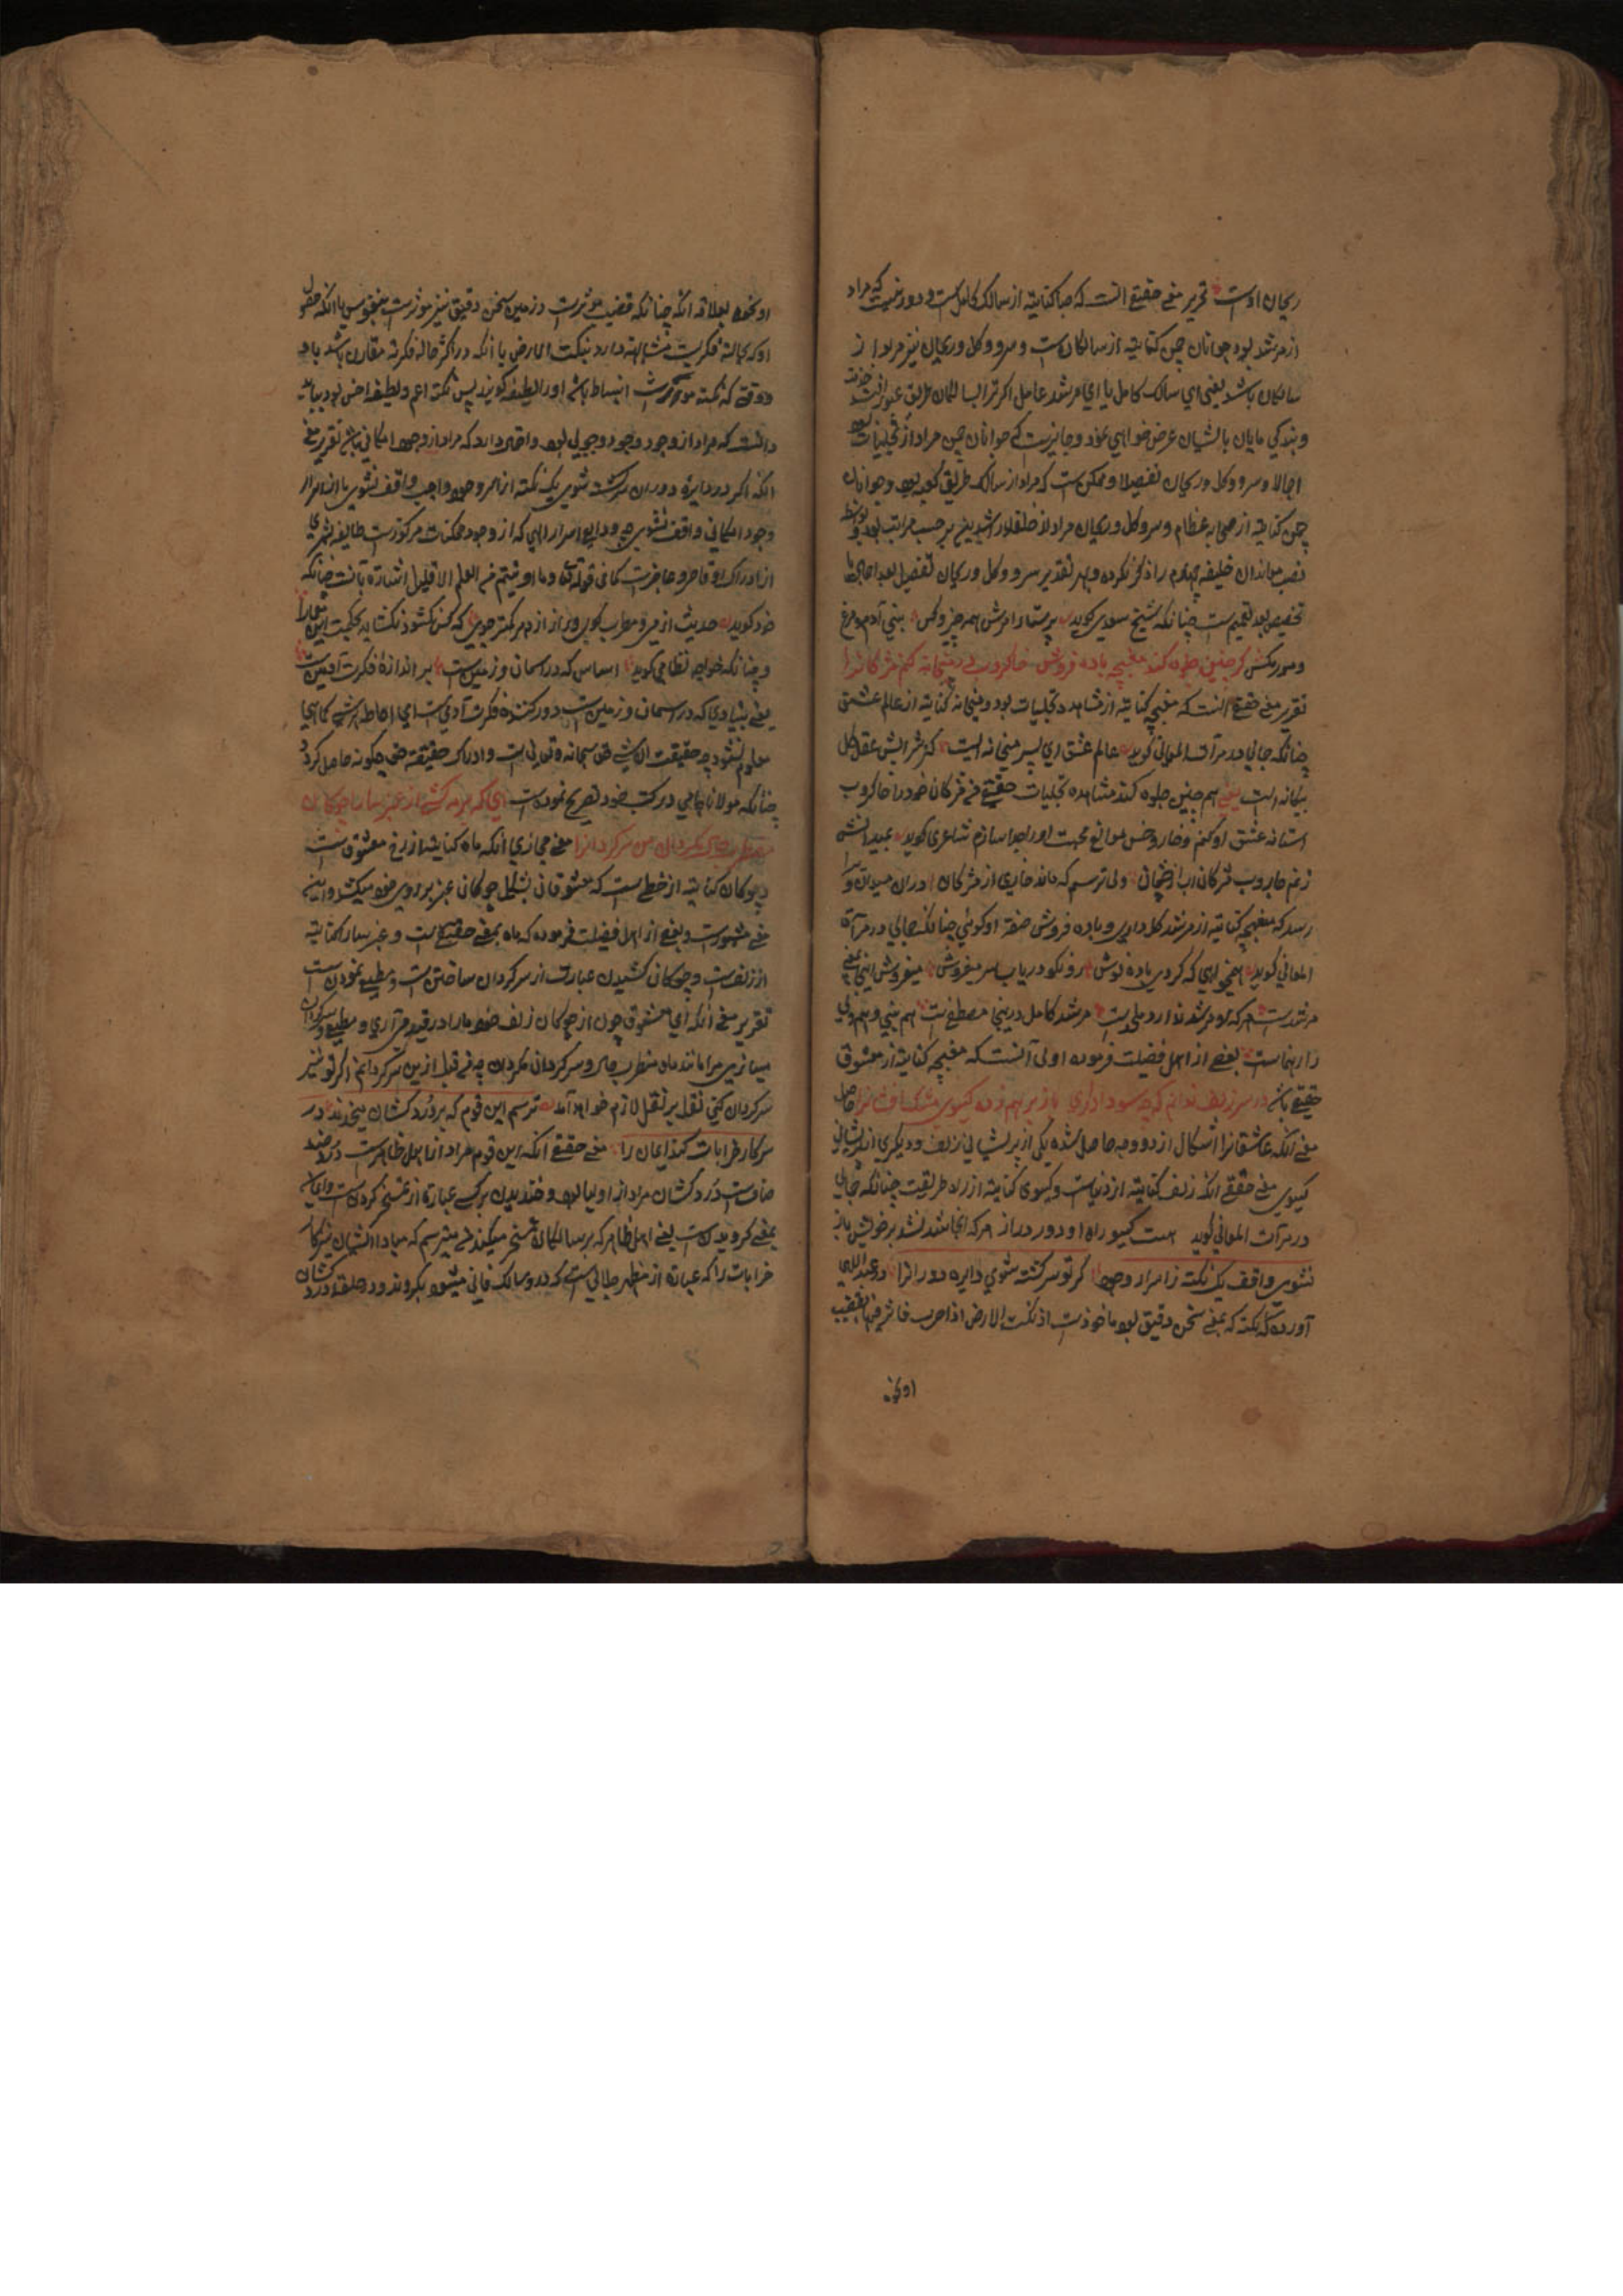 ریحان اوست تحریر معنی حقیقی انست که صبا کنایته از سالک کامل است و دور نیست که مراد
از مرشد بود جوانان چمن کنایته از سالکان ست و سرو و کل و ریحان نیز مراد از
سالکان باشد یعنی ای سالک کامل یا ای مرشد عامل اکر ترا با سالکان طریق عبور افتد خدمت
و بندکی مایان بایشیان عرض خواهی نمود و جایزست که جوانان چمن مراد از تجلیات بود
اجمالا و سرو و کل و ریحان تفصیلا و ممکن ست که مراد از سالک طریق کوید بود و جوانان
چمن کنایته از صحابه عظام و سرو و کل و ریحان مراد از خلفاء راشدین بر حسب مراتب بود
خلیفه چهارم را ذکر نکرده و بهر تقدیر سرو و کل و ریحان تفصیل بعد اجمال یا
تخصیص بعد تعمیم ست چنانکه شیخ سعدی کوید پرستار امرش همه چیز و کس بنی آدم و مرغ
و مور و مکس کر چنین جلوه کند مغبچه باده فروش خاکروب در میخانه کنم مژکانرا
تقریر معنی حقیقی انست که مغبچه کنایته از مشاهده تجلیات بود و میخانه کنایته از عالم عشق
چنانکه جمالی در مرآت المعانی کوید عالم عشق ای پسر میخانه ایست کز شرابش عقل کل
بیکانه ایست یعنی هم چنین جلوه کند مشاهده تجلیات حقیقی من مژکان خود را خاکروب
استانه عشق او کنم و خار و خس موانع محبت او را جدا سازم شاعری کوید
زنم جاروب مژکان اب از چشمان ولی ترسم که ماند خاری از مژکان دران میدان
رسد که مغبچه کنایته از مرشد کل داری و باده فروش صفة او کوئی چنانکه جمالی در مرآة
المعانی کوید همچو اهی که کردی باده نوش رو نکو دریاب سر میفروش میفروش اینجا بمعنی
مرشدست هر که او مرشد ندارد ملحدست مرشد کامل درینجا مصطفی ست هم نبی و هم ولی
را رهنماست بعضی از اهل فضیلت فرموده اولی آنست که مغبچه کنایته از معشوق
حقیقی باشد در سر زلف ندانم که چه سودا داری باز برهم زده کیسوی مشک افشانرا حاصل
معنی انکه عاشقانرا اشکال از دو وجه حاصل شده یکی از پریشانی زلف و دیکری از پریشانی
کیسوی معنی حقیقی انکه زلف کنایته از دنیاست و کیسوی کنایته از راه طریقت چنانکه جمالی
در مرآت المعانی کوید هست کیسو راه او دور دراز هر که انجا شد نشد بر خویش باز
نشوی واقف یک نکته ز اسرار وجود کر تو سرکشته شوی دایره دورانرا در عبداللهی
آورده که نکته که بمعنی سخن دقیق بود ماخوذست از نکت الارض اذا ضرب فاثر فیها بقضیب
او نخو
او نخوه بعلاقه انکه چنانکه قضیب موثرست در زمین سخن دقیق نیز موثرست بنفوس یا انکه حصول
او که بحالته فکریت مشابهته دارد بنکت الارض یا انکه در اکثر حاله فکرته مقارن باشد باو
و وقتی که نکته موثرست انبساط باشد او را لطیفه کویند پس نکته اعم و لطیفه اخص بود بباید
دانست که مراد از وجود وجود وجوبی بود و احتمال دارد که مراد از وجود امکانی باشد تقریر معنی
انکه اکر در دایره دوران سرکشته شوی یک نکته از اسرار وجود واجب واقف نشوی یا از اسرار
وجود امکانی واقف نشوی چه ودایع اسرار الهی که از وجود ممکنات مرکوزست طایفه بشری
از ادراک او قاصر و عاجزست کما فی قوله تعالی و ما اوتیتم من العلم الا قلیلا اشارة بآنست چنانکه
خود کوید حدیث از می و مطرب کوی و راز از دهر کمتر جوی که کس نکشود و نکشاید بحکمت این معما را
و چنانکه خواجه نظامی کوید اساس که در اسمان و زمین ست بر اندازه فکرت آدمیست
یعنی بنیادی که در اسمان و زمین ست دور کننده فکرت آدمیست ای احاطه هر شی کماهی
معلوم نشود چه حقیقت ان شی حق سبحانه و تعالی ست و ادراک حقیقته حق چکونه حاصل کردد
چنانکه مولانا جامی در کتب خود تصریح نموده است ای که بر مه کشی از عنبر سارا چوکان
مضطرب حال مکردان من سرکردانرا معنی مجازی انکه ماه کنایته از رخ معشوق ست
و چوکان کنایته از خطی ست که معشوقان بشکل چوکان عنبر بر روی خود میکشند و این
معنی مشهورست و بعضی از اهل فضیلت فرموده که ماه بمعنی حقیقی ست و عنبر سارا کنایته
از زلف ست و چوکان کشیدن عبارت از سرکردان ساختن ست و مطیع نمودن ست
تقریر معنی انکه ای معشوق چون از چوکان زلف خود ماه را در قید می آری و مطیع و سرکردان
میسازی مرا مانند ماه مضطرب حال و سرکردان مکردان چه من قبل ازین سرکردانم اکر تو نیز
سرکردان کنی نقل بر نقل لازم خواهد آمد ترسم این قوم که بر دردکشان میخندند در
سر کار خرابات کنند ایمان را معنی حقیقی انکه این قوم مراد از اهل ظاهرست
صافست دردکشان مراد از اولیا بود و خندیدن بر کسی عبارة از تمسخر کردن ست و ایمان
بمعنی کرویدن ست یعنی اهل ظاهر که بر سالکان تمسخر میکنند می ترسم که مبادا ایشان
خرابات را که عبارة از مظهر جلالی ست که درو سالک فانی میشود بکروند و در حلقه دردکشان